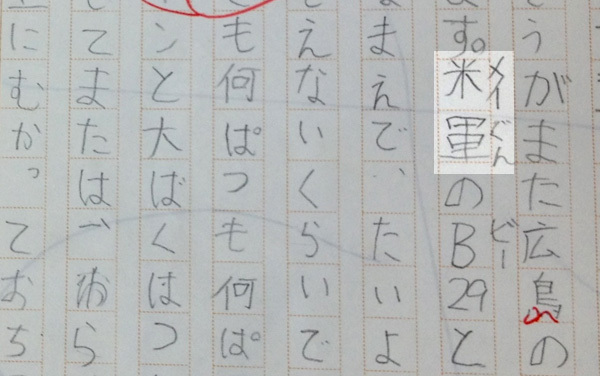 うがまた広島の
す。米軍のB29と
メイぐん ビー
まえで、たいよ
えないくらいで
も何ぱつも何ぱ
ンと大ばくはつ
てまたは
ら
にむかっておち